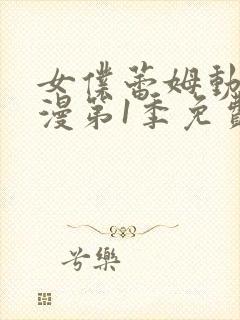 女僕蕾姆動
漫第1季免費
兮樂